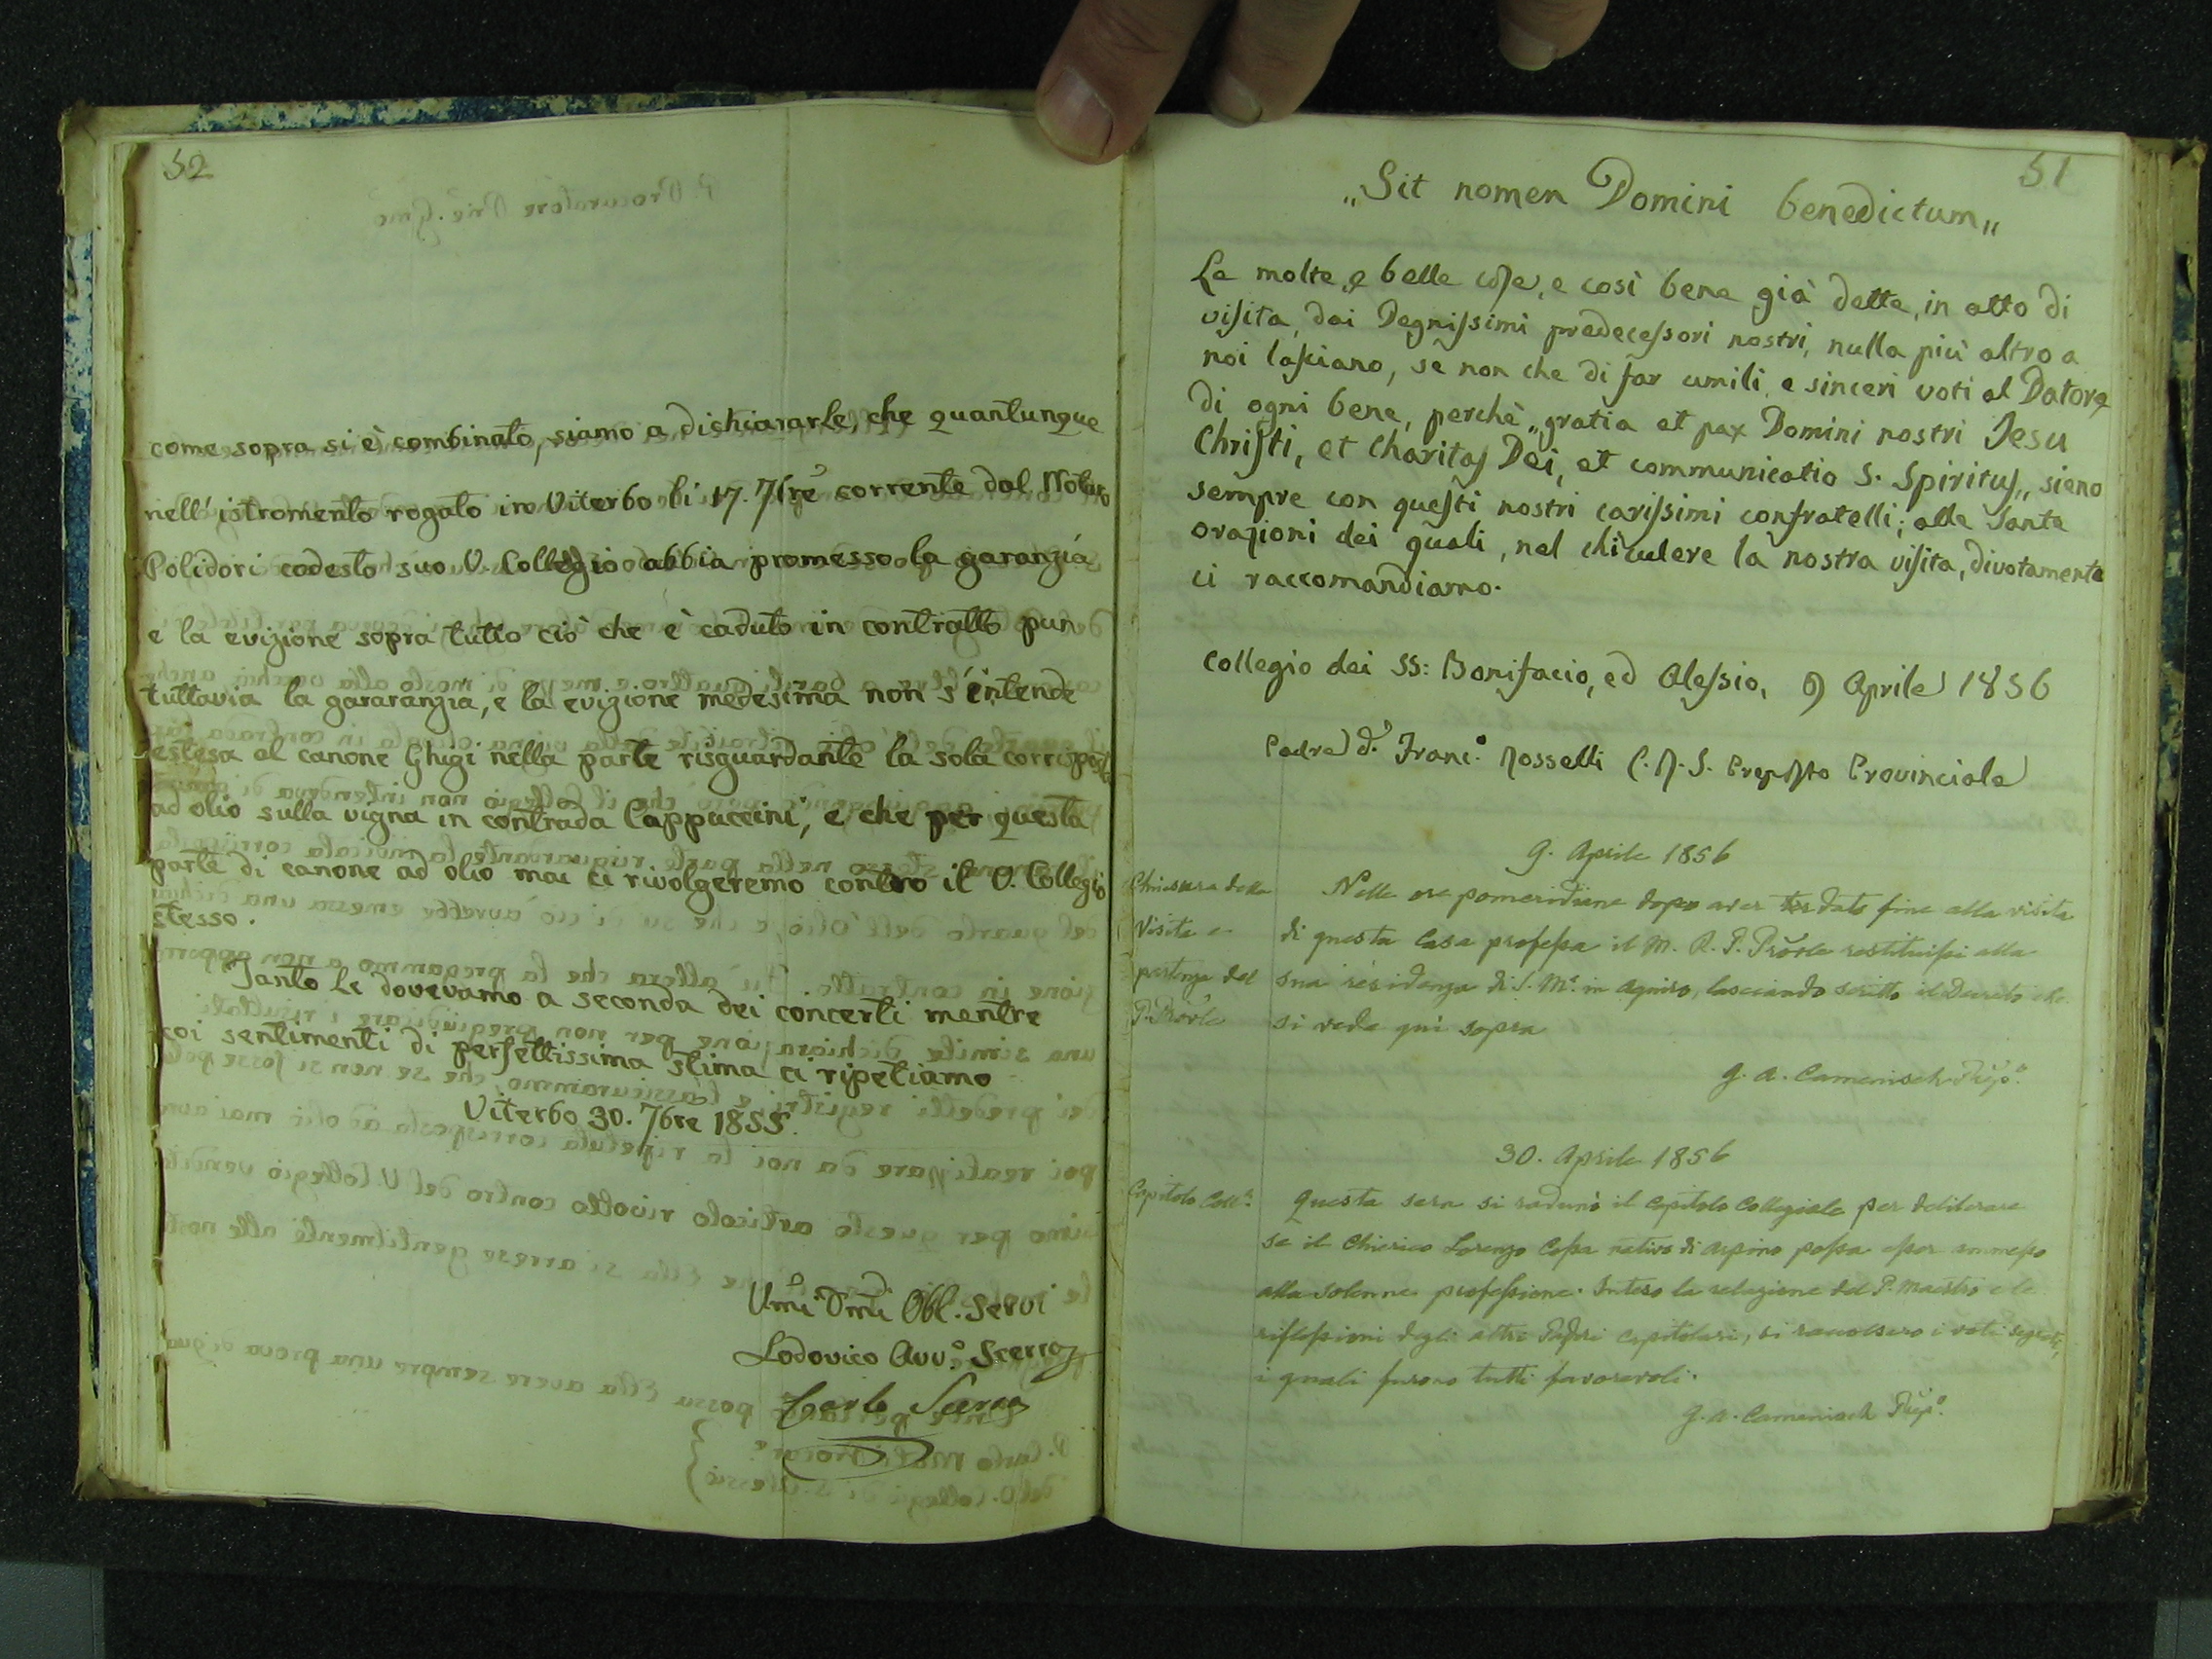 52
come sopra si è combinato, siamo a dichiararLe, che quantunque
nell'istromento rogato in Viterbo li 17. 7bre corrente dal Notaro
Polidori codesto suo V. Collegio abbia promesso la garanzia
e la evizione sopra tutto ciò che è caduto in contratto pur
tuttavia la gararanzia, e la evizione medesima non s'intende
estesa al canone Ghigi nella parte risguardante la sola corrisposta
ad olio sulla vigna in contrada Cappuccini, e che per questa
parte di canone ad olio mai ci rivolgeremo contro il V. Collegio
stesso.
Tanto Le dovevamo a seconda dei concerti mentre
coi sentimenti di perfettissima stima ci ripetiamo
Viterbo 30. 7bre 1855.
Umi Dmi Obl. Servi
Lodovico Avv.o
Carlo
51
„Sit nomen Domini benedictum„
Le molte, e belle cose, e così bene già dette, in atto di
visita, dai Degnissimi predecessori nostri, nulla più altro a
noi lasciano, se non che di far umili, e sinceri voti al Datore
di ogni bene, perchè „gratia et pax Domini nostri Jesu
Christi, et Charitas Dei, et communicatio S. Spiritus„ sieno
sempre con questi nostri carissimi confratelli; alle sante
orazioni dei quali, nel chiudere la nostra visita, divotamente
ci raccomandiamo.
Collegio dei SS: Bonifacio, ed Alessio, 9 Aprile 1856
Padre d. Franc.o Rosselli C.R.S. Preposto Provinciale
9. Aprile 1856
Chiusura della
Visita e
partenza del
P. Prõvle
Nelle ore pomeridiane dopo aver dato fine alla visita
di questa Casa professa il M. R. P. Prõvle restituissi alla
sua residenza di S. Ma. in Aquiro, lasciando scritto il Decreto che
si vede quì sopra
G. A. Camenisch Prep.o
30. Aprile 1856
Capitolo Coll.e
Questa sera si radunò il Capitolo Collegiale per deliberare
se il Chierico Lorenzo Cossa nativo di Arpino possa esser ammesso
alla solenne professione. Inteso la relazione del P. Maestro e le
riflessioni degli altri Padri Capitolari, si raccolsero i voti segreti,
i quali furono tutti favorevoli.
G. A. Camenisch Prep.o